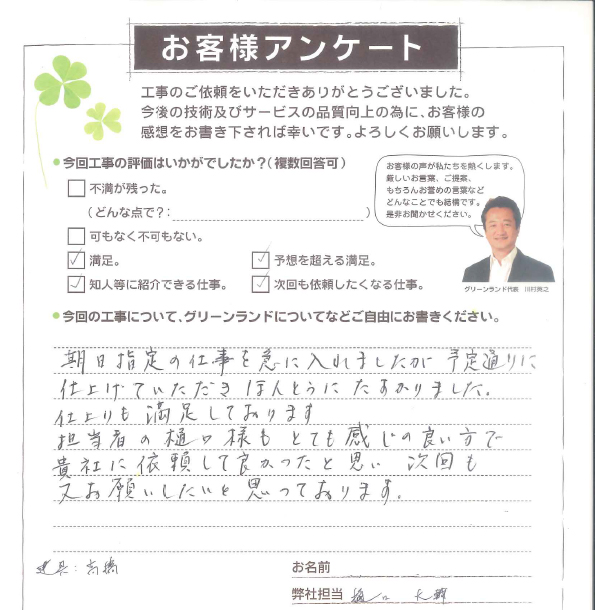 お客様アンケート
工事のご依頼をいただきありがとうございました。
今後の技術及びサービスの品質向上の為に、お客様の
感想をお書き下されば幸いです。よろしくお願いします。
今回工事の評価はいかがでしたか？(複数回答可)
不満が残った。
(どんな点で?:　)
可もなく不可もない。
満足。
予想を超える満足。
知人等に紹介できる仕事。
次回も依頼したくなる仕事。
お客様の声が私たちを熱くします。
厳しいお言葉、ご提案、
もちろんお誉めの言葉など
どんなことでも結構です。
是非お聞かせください。
グリーンランド代表 川村
今回の工事について、グリーンランドについてなどご自由にお書きください。
期日指定の仕事を急に入れましたが 予定通りに
仕上げていただき ほんとうに たすかりました。
仕上りも 満足しております
担当者の樋口様も とても感じの良い方で
貴社に依頼して良かったと思い 次回も
又お願いしたいと思っております。
高橋
お名前
弊社担当 樋口